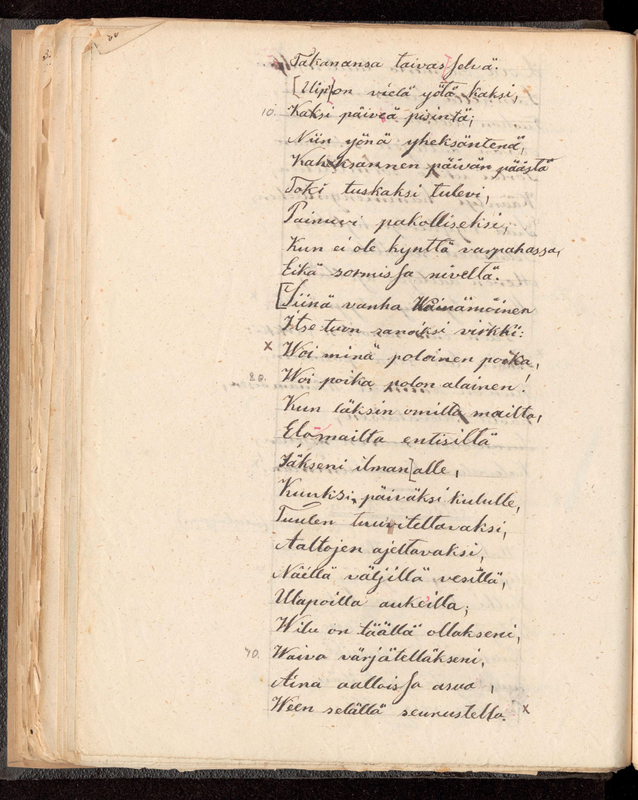 Takanansa taivas selvä.
[Uip]on vielä yötä kaksi,
10. Kaksi päiveä pisintä;
Niin yönä yheksäntenä,
Kaheksannen päivän päästä
Toki tuskaksi tulevi,
Painuvi pakolliseksi,
Kun ei ole kynttä varpahassa,
Eikä sormissa niveltä.
[Siinä vanha Wäinämöinen
Itse tuon sanoiksi virkki:
x Woi minä poloinen poika,
20. Woi poika polon alainen!
Kun läksin omilta mailta,
Elomailta entisiltä
Jäkseni ilman]alle,
Kuuksi, päiväksi kululle,
Tuulen tuuviteltavaksi,
Aaltojen ajeltavaksi,
Näillä väljillä vesillä,
Ulapoilla aukeilla;
Wilu on täällä ollakseni,
70. Waiva värjätelläkseni,
Aina aalloissa asua,
Ween selällä seurustella. x